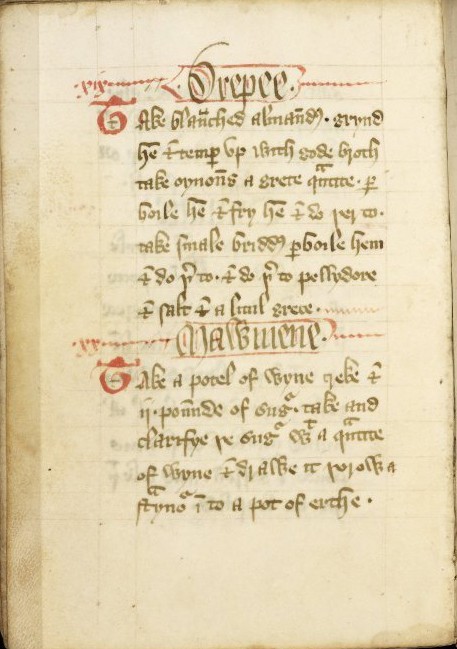 xix Drepee.
Take blanched almand. grynd
he & temp vp with gode broth
take oynons a grete qantite. p
boile he & fry he & do þer to.
take smale bridd pboile hem
& do þ to. & do þ to pellydore
& salt & a litul grece.
xx Mawmene.
Take a potel of wyne greke &
ii. pounde of sug. take and
clarifye þe sug wt a qantite
of wyne & drawe it þorow a
stryno in to a pot of erthe.